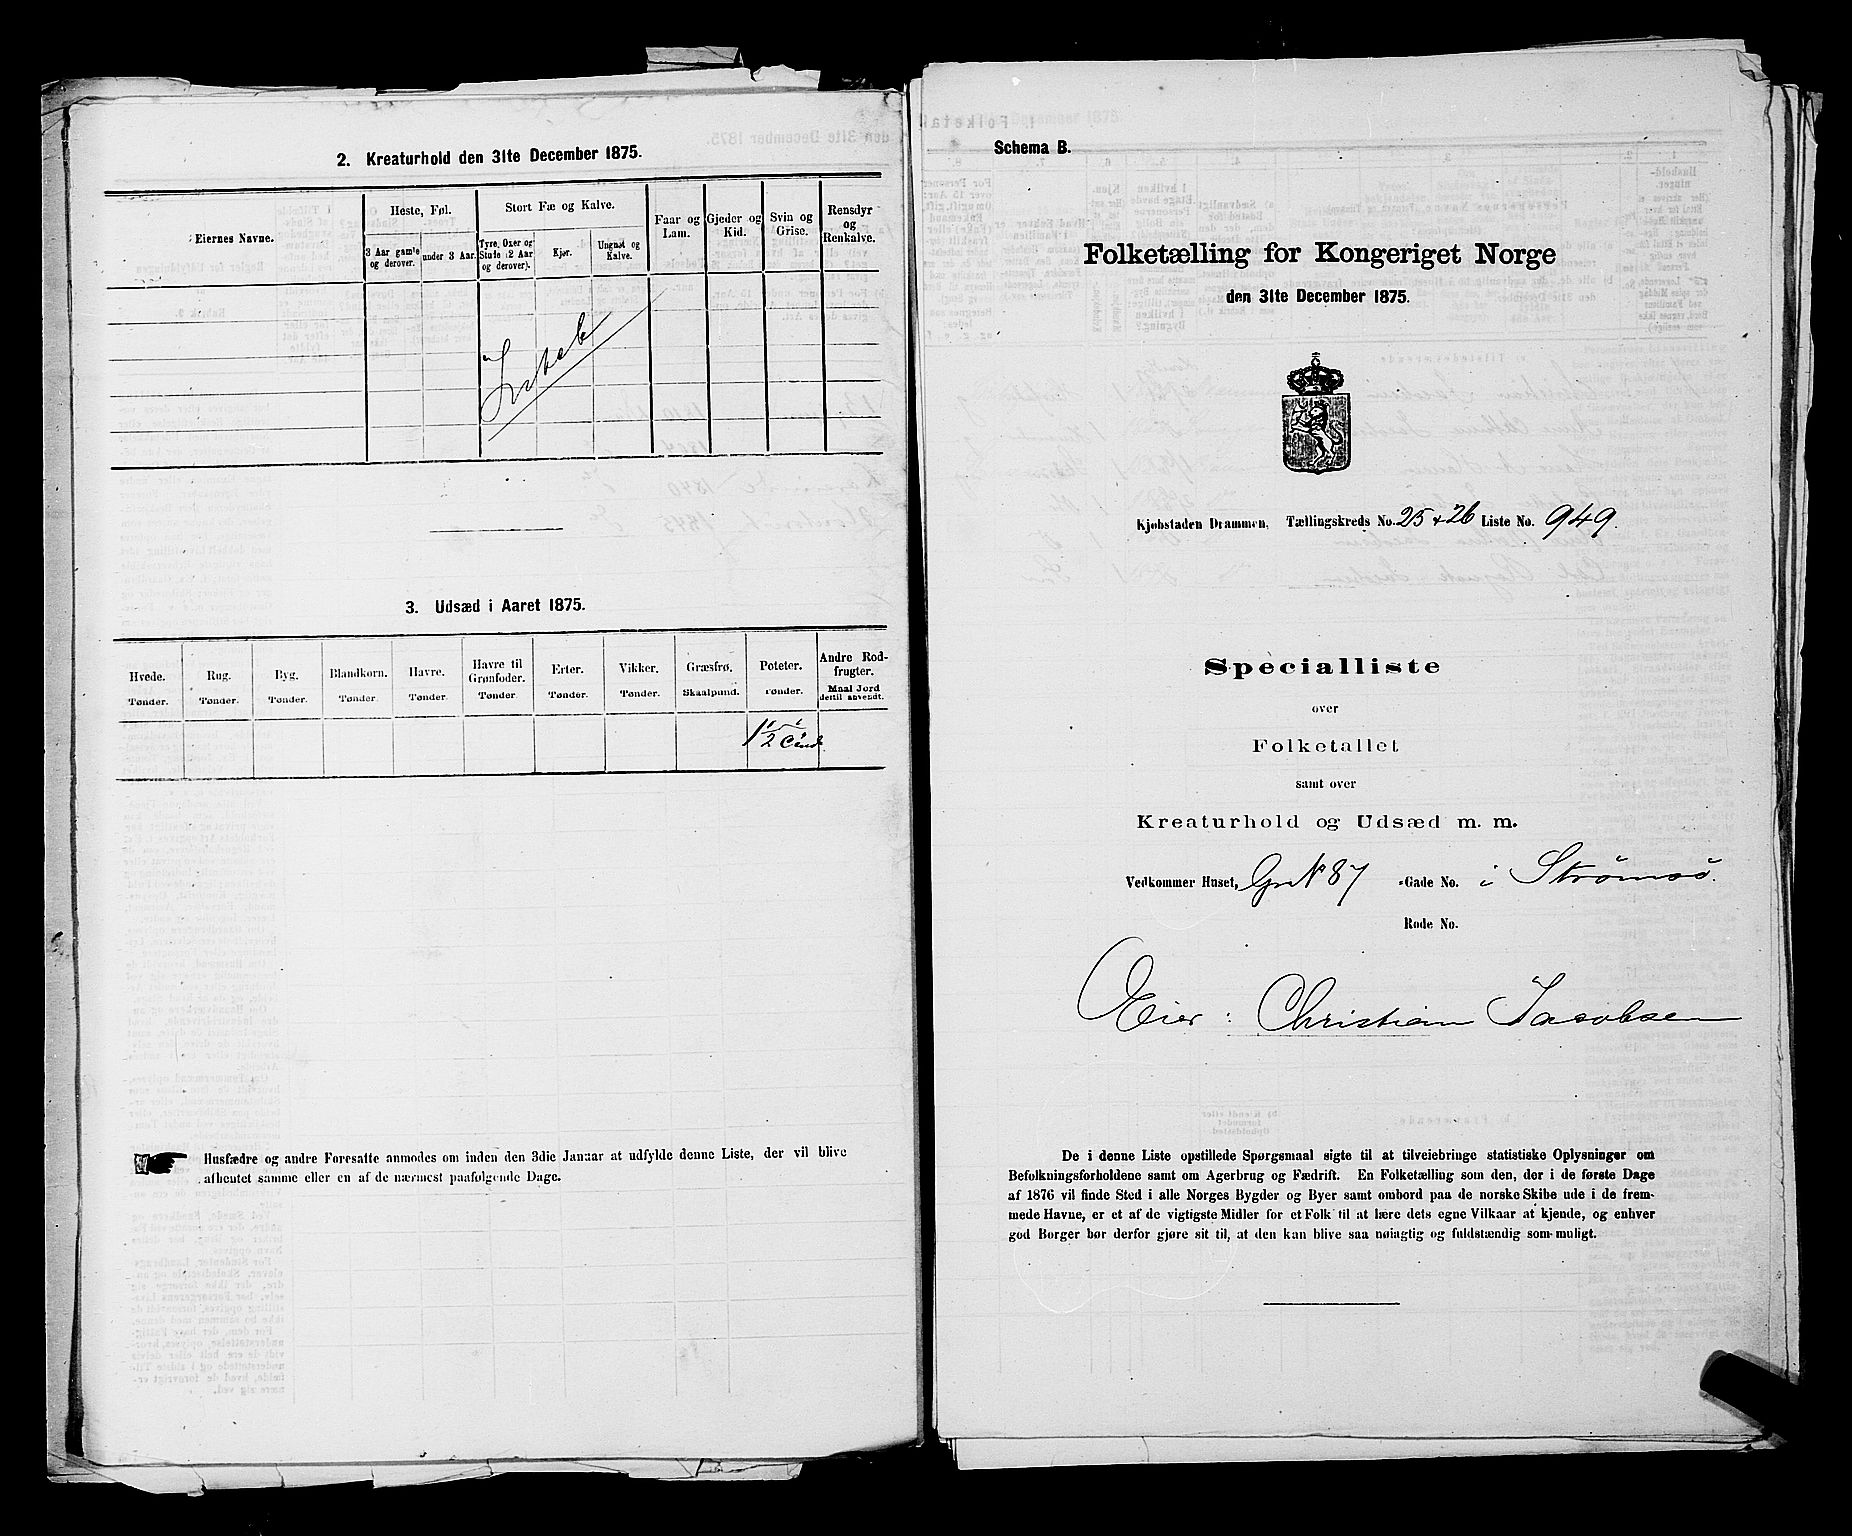 2. Kreaturhold den 31te December 1875.
Eiernes Navne.
Heste, Føl.
3 Aar gamle og derover.
under 3 Aar.
Stort Fæ og Kalve.
Tyre, Oxer og Stude (2 Aar og derover).
Kjør.
Ungnød og Kalve.
Faar og Lam.
Gjeder og Kid.
Svin og Grise.
Rensdyr og Renkalve.
3. Udsæd i Aaret 1875.
Hvede. Tønder.
Rug. Tønder.
Byg. Tønder.
Blandkorn. Tønder.
Havre. Tønder.
Havre til Grønfoder. Tønder.
Erter. Tønder.
Vikker. Tønder.
Græsfrø. Skaalpund.
Poteter. Tønder.
Andre Rodfrugter. Maal Jord dertil anvendt.
1/2
Husfædre og andre Foresatte anmodes om inden den 3die Januar at udfylde denne Liste, der vil blive
afhentet samme eller en af de nærmest paafølgende Dage.
Schema B.
Folketælling for Kongeriget Norge
den 31te December 1875.
Kjøbstaden Drammen, Tællingskreds No. 25 + 26 Liste No. 949.
Specialliste
over
Folketallet
samt over
Kreaturhold og Udsæd m. m.
Vedkommer Huset, Gr No 87 -Gade No. i Strømsö.
Rode No.
Eier: Christian Jacobsen
De i denne Liste opstillede Spørgsmaal sigte til at tilveiebringe statistiske Oplysninger om
Befolkningsforholdene samt om Agerbrug og Fædrift. En Folketælling som den, der i de første Dage
af 1876 vil finde Sted i alle Norges Bygder og Byer samt ombord paa de norske Skibe ude i de frem-
mede Havne, er et af de vigtigste Midler for et Folk til at lære dets egne Vilkaar at kjende, og enhver
god Borger bør derfor gjøre sit til, at den kan blive saa nøiagtig og fuldstændig som muligt.